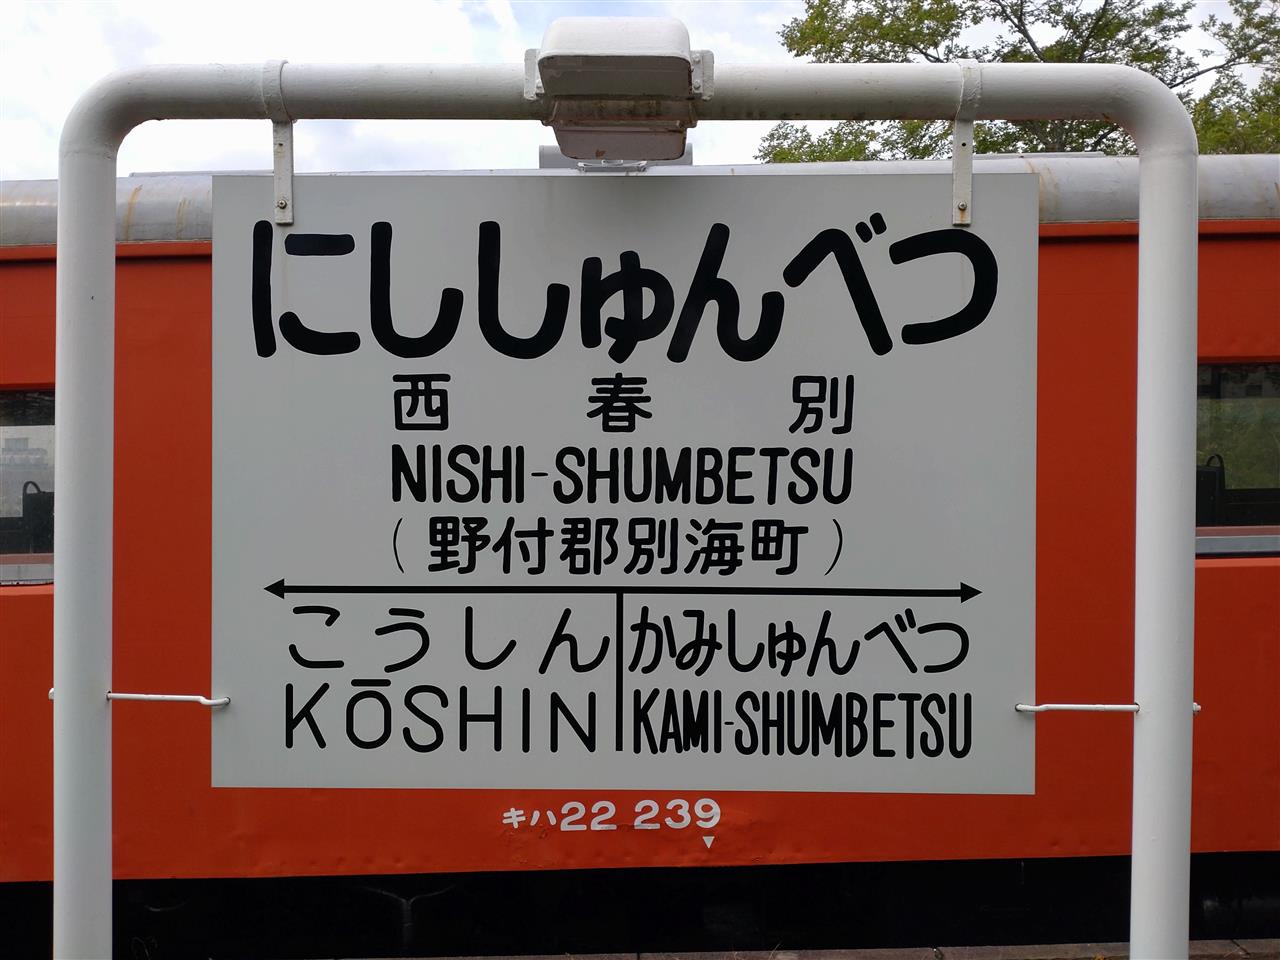 にししゅんべつ
西春別
NISHI-SHUMBETSU
(野付郡別海町)
こうしん かみしゅんべつ
KŌSHIN KAMI-SHUMBETSU
キハ22 239